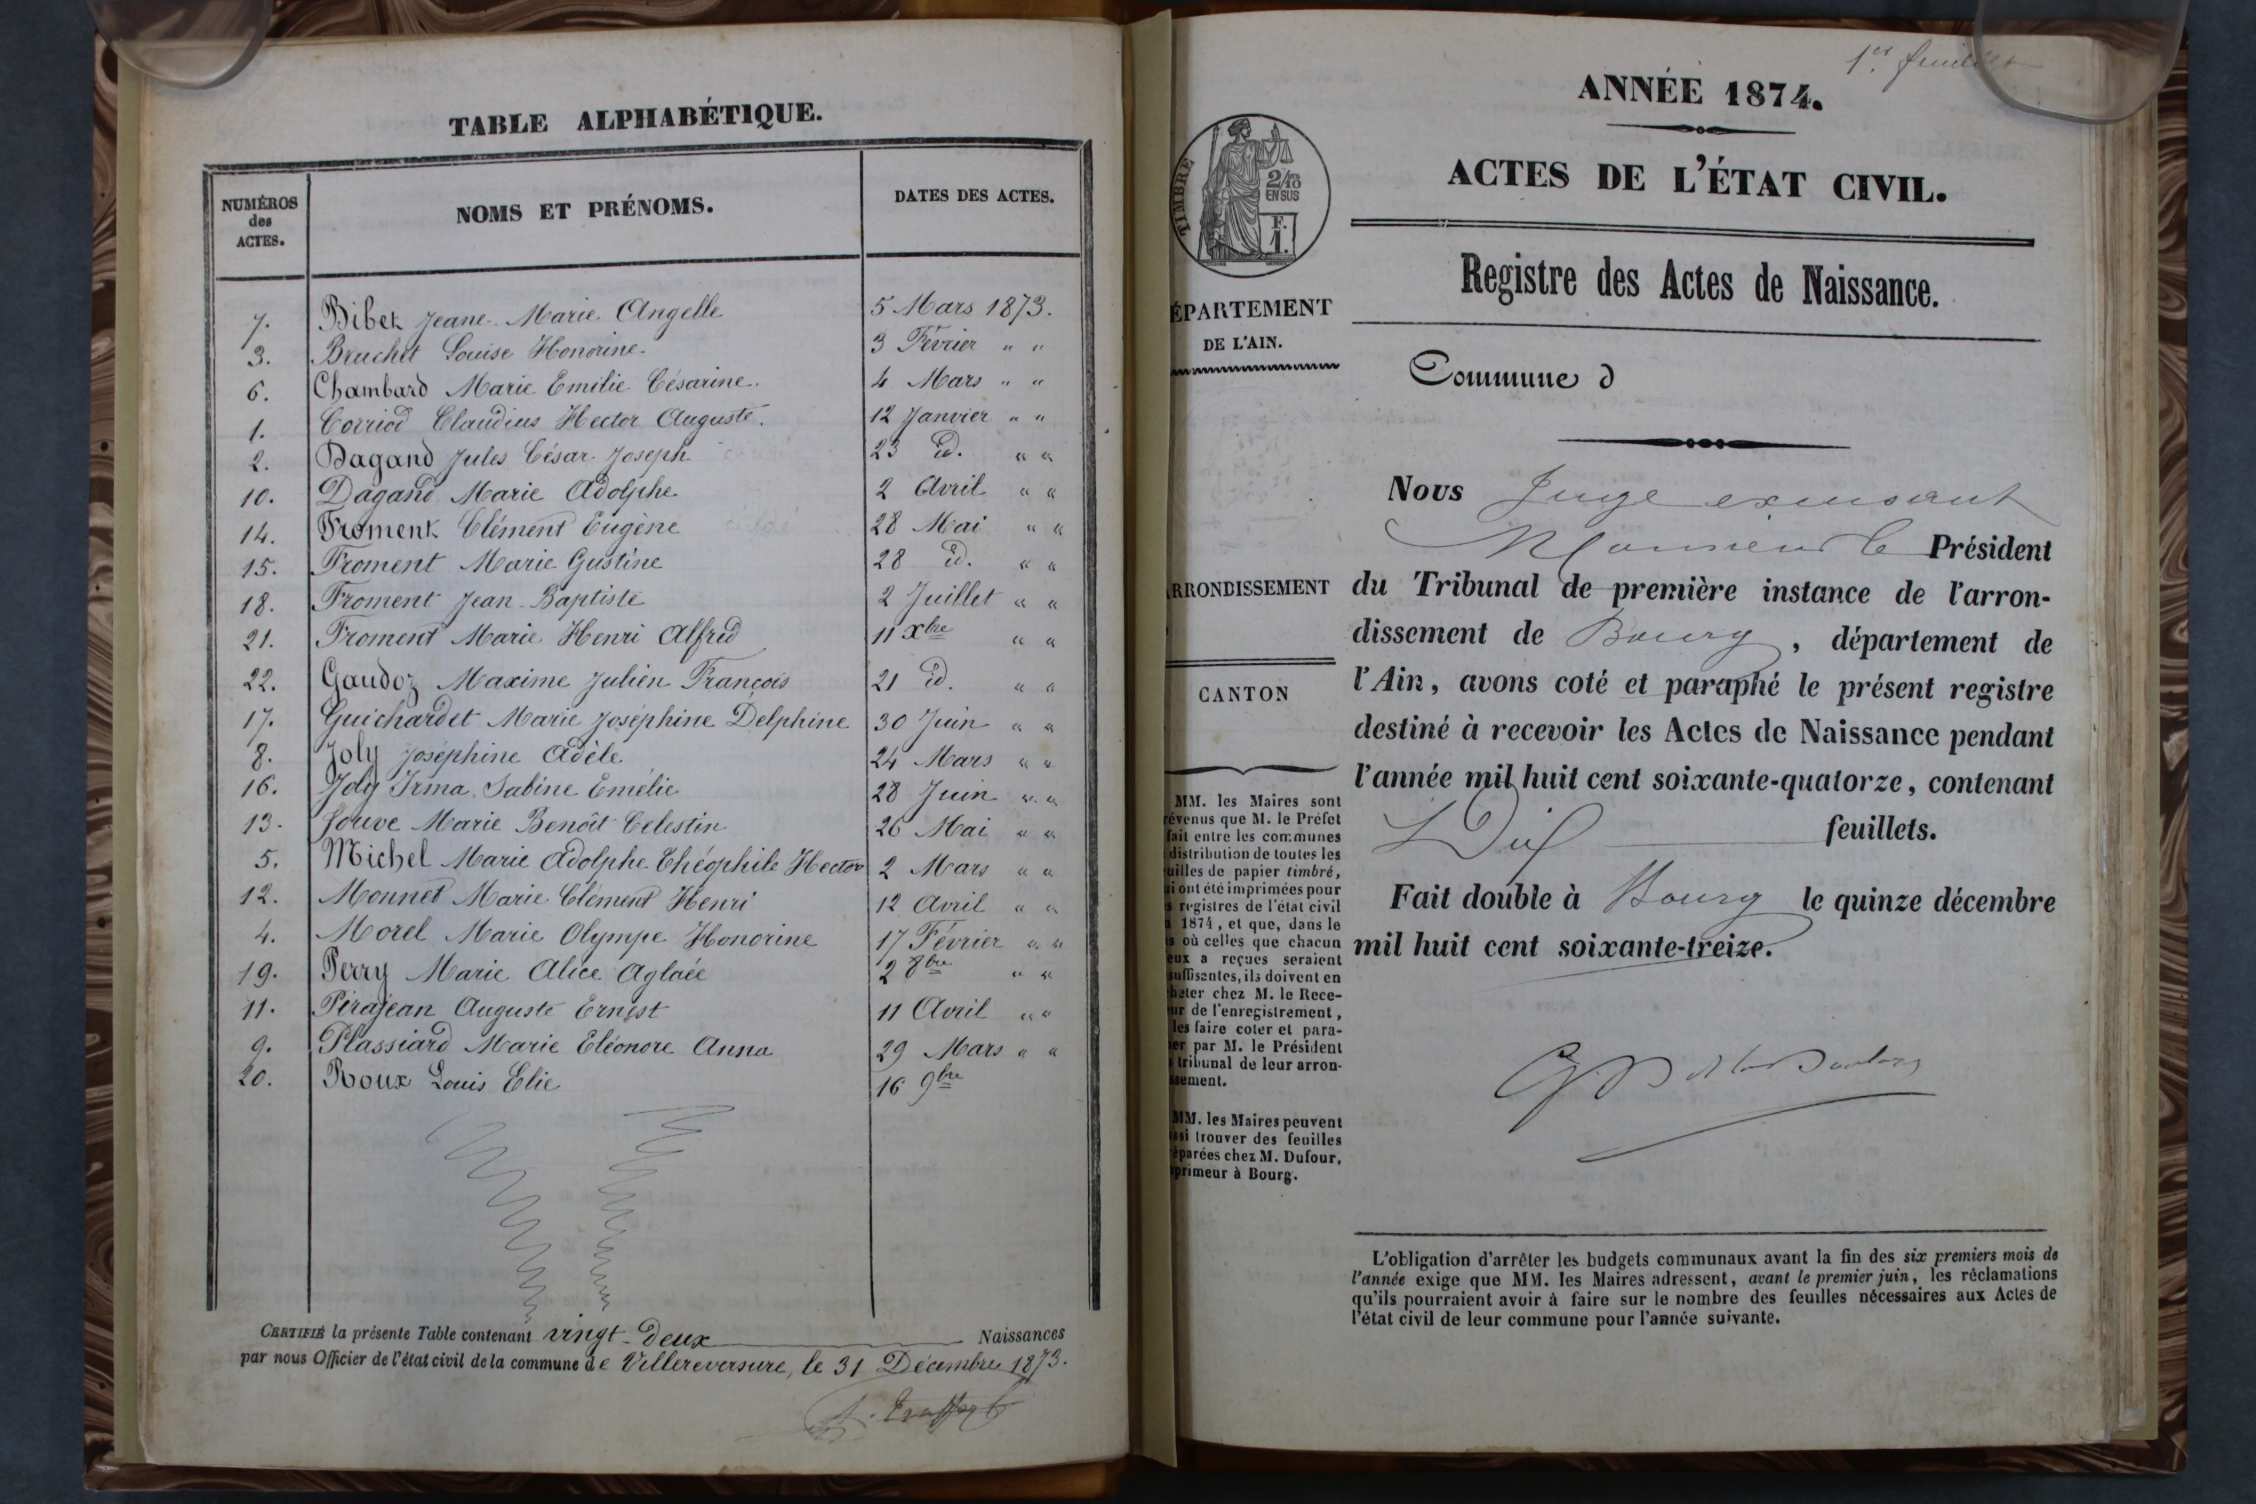 TABLE ALPHABÉTIQUE.
NUMÉROS des ACTES. NOMS ET PRÉNOMS. DATES DES ACTES.
7. Bibet Jeane Marie Angelle 5 Mars 1873.
3. Bruchet Louise Honorine. 3 Février " "
6. Chambard Marie Emilie Césarine. 4 Mars " "
1. Corriod Claudius Hector Auguste. 12 Janvier " "
2. Dagand Jules César Joseph 23 id. " "
10. Dagand Marie Adolphe 2 Avril " "
14. Froment Clément Eugène 28 Mai " "
15. Froment Marie Gustine 28 id. " "
18. Froment Jean-Baptiste 2 Juillet " "
21. Froment Marie Henri Alfred 11 Xbre " "
22. Gaudoz Maxime Julien François 21 id. " "
17. Guichardet Marie Joséphine Delphine 30 Juin " "
8. Joly Joséphine Adèle 24 Mars " "
16. Joly Irma Sabine Emélie 28 Juin " "
13. Jouve Marie Benoît Celestin 26 Mai " "
5. Michel Marie Adolphe Théophile Hector 2 Mars " "
12. Monnet Marie Clément Henri 12 Avril " "
4. Morel Marie Olympe Honorine 17 Février " "
19. Perry Marie Alice Aglaée 2 8bre " "
11. Pirajean Auguste Ernest 11 Avril " "
9. Plassiard Marie Eléonore Anna 29 Mars " "
20. Roux Louis Elie 16 9bre
CERTIFIÉ la présente Table contenant vingt-deux Naissances
par nous Officier de l'état civil de la commune de Villereversure, le 31 Décembre 1873.
1er feuillet
ANNÉE 1874.
ACTES DE L'ÉTAT CIVIL.
TIMBRE
2/10 EN SUS
F. 1.
Registre des Actes de Naissance.
ÉPARTEMENT
DE L'AIN.
Commune d
Nous Juge excusant
Monsieur le Président
ARRONDISSEMENT
du Tribunal de première instance de l'arron-
dissement de Bourg, département de
CANTON
l'Ain, avons coté et paraphé le présent registre
destiné à recevoir les Actes de Naissance pendant
l'année mil huit cent soixante-quatorze, contenant
Dix feuillets.
Fait double à Bourg le quinze décembre
mil huit cent soixante-treize.
MM. les Maires sont
évenus que M. le Préfet
fait entre les communes
distribution de toutes les
uilles de papier timbré,
i ont été imprimées pour
s registres de l'état civil
1874, et que, dans le
s où celles que chacun
eux a reçues seraient
suffisantes, ils doivent en
heter chez M. le Rece-
ur de l'enregistrement,
les faire coter et para-
er par M. le Président
tribunal de leur arron-
ssement.
MM. les Maires peuvent
ssi trouver des feuilles
éparées chez M. Dufour,
primeur à Bourg.
L'obligation d'arrêter les budgets communaux avant la fin des six premiers mois de
l'année exige que MM. les Maires adressent, avant le premier juin, les réclamations
qu'ils pourraient avoir à faire sur le nombre des feuilles nécessaires aux Actes de
l'état civil de leur commune pour l'année suivante.